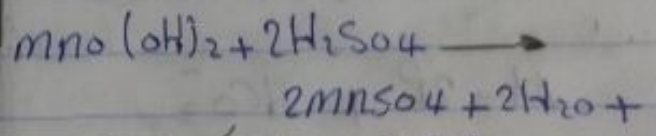 mno (oH)₂ + 2H₂SO4 ⟶
2mnso4 + 2H₂O +